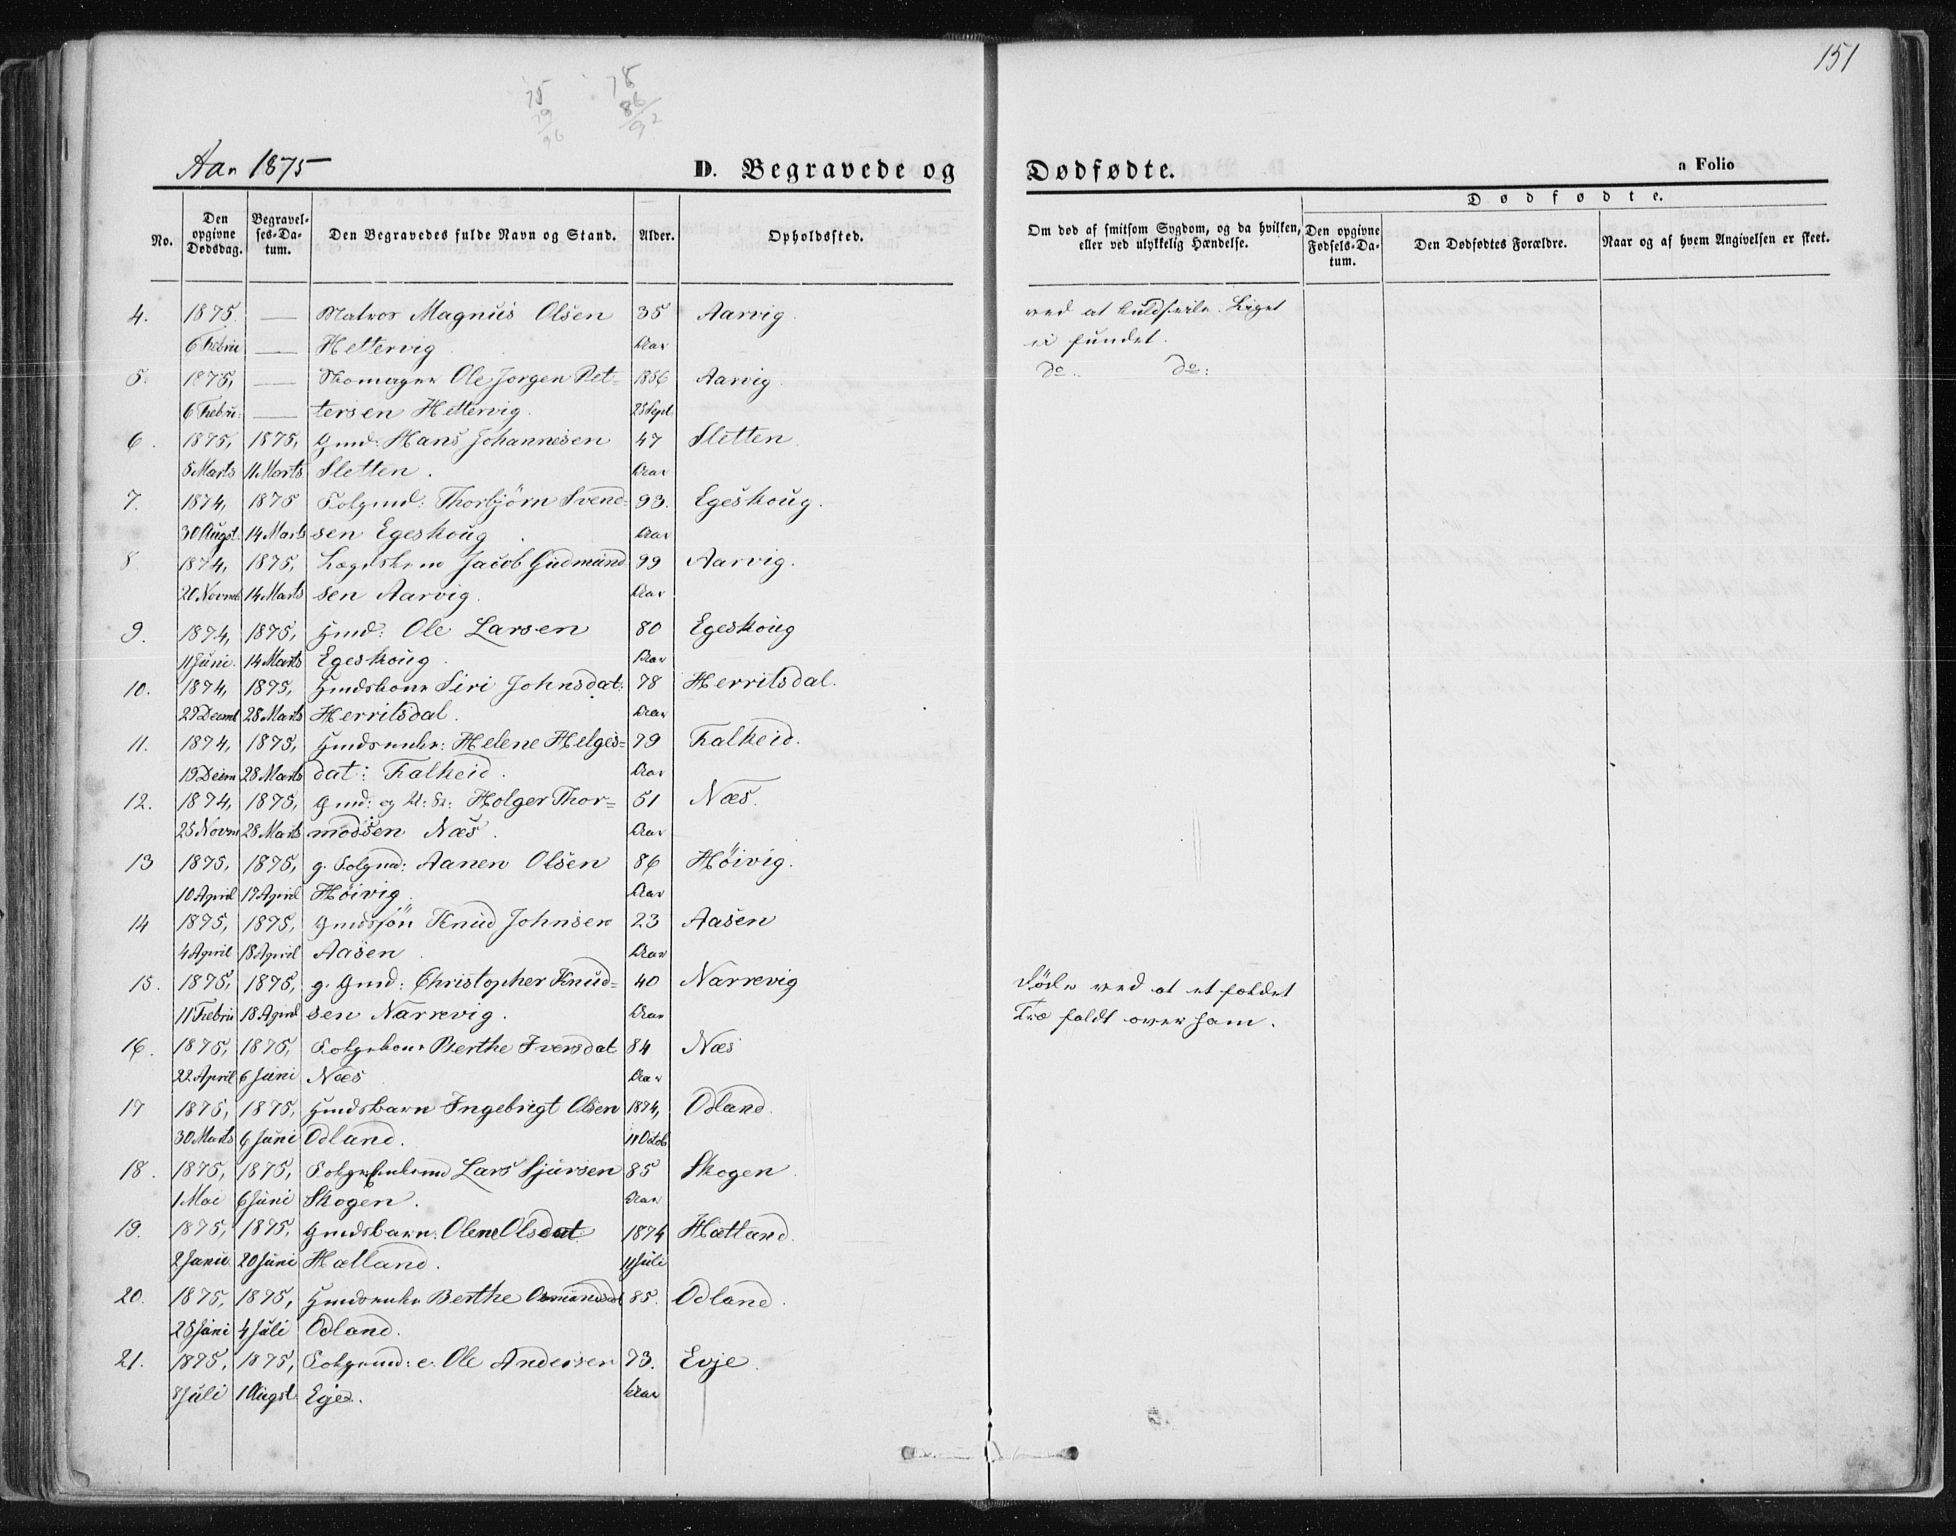 151
75
79/96
75
86/92
Aar 1875
D. Begravede og Dødfødte.
a Folio
No.
Den opgivne Dødsdag.
Begravel-ses-Da-tum.
Den Begravedes fulde Navn og Stand.
Alder.
Opholdssted.
Om død af smitsom Sygdom, og da hvilken, eller ved ulykkelig Hændelse.
Dødfødte.
Den opgivne Fødsels-Da-tum.
Den Dødfødtes Forældre.
Naar og af hvem Angivelsen er skeet.
4. 1875. — Matros Magnus Olsen 35 Aarvig. ved at kuldseile. Liget
6 Febru — Hettervig Aar ei fundet.
5. 1875, — Skomager Ole Jørgen Pet- 1856 Aarvig. do. do:
6 Febru: — tersen Hettervig. 28 Sept
6. 1875, 1875, Gmd: Hans Johannesen 47 Sletten.
8 Marts 11 Marts Sletten. Aar
7. 1874, 1875 Folgmd: Thorbjörn Svend- 93. Egeskoug.
30 Augst. 14 Marts sen Egeskoug. Aar
8 1874, 1875, Jacob Gudmund 99 Aarvig.
20 Novmb 14 Marts sen Aarvig. Aar
9. 1874, 1875, Hmd: Ole Larsen 80 Egeskoug
11 Juni. 14 Marts Egeskoug. Aar
10. 1874, 1875, Hmdskone Siri Johnsdat: 78 Herritsdal.
29 Decmb 28 Marts Herritsdal. Aar
11. 1874, 1875, Hmdsenke: Helene Helges- 79 Falheid.
19 Decm 28 Marts dat: Falheid. Aar
12. 1874, 1875, Gmd: og Holger Thor- 51 Næs.
25 Novm 28 Marts modsen Næs. Aar
13 1875, 1875, g. Folgmd: Aanen Olsen 86 Höivig.
10 April 17 April Höivig. Aar
14 1875, 1875, Gmdssön Knud Johnsen 23 Aasen
4 April 18 April Aasen. Aar
15. 1875, 1875, g. Gmd: Christopher Knud- 40 Narrevig Döde ved at et fældet
11 Febru 18 April sen Narrevig. Aar Træ faldt over ham.
16. 1875, 1875, Folgekone Berthe Iversdat 84 Næs
22 April 6 Juni Næs Aar
17 1875, 1875, Hmdsbarn Ingebrigt Olsen 1874, Odland.
30 Marts 6 Juni Odland. 11 Octob
18. 1875, 1875, Lars Sjursen 85 Skogen.
1 Mai 6 Juni Skogen. Aar
19. 1875, 1875, Gmdsbarn: Olene Olsdat 1874 Hætland.
2 Janu 20 Juni Hætland. 11 Juli
20. 1875, 1875, Hmdsenke Berthe Osmundsdat 85. Odland.
28 Juni 4 Juli Odland.
21. 1875, 1875, Folgemd: e. Ole Andersen 73. Evje.
8 Juli 1 Augst. Eje. Aar